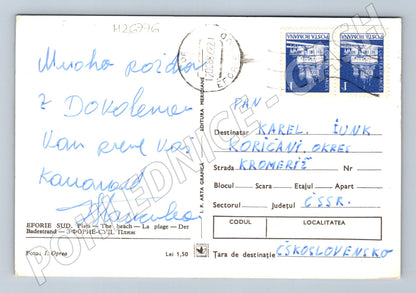 H26776
Mnoho pozdravů
z Dovolené
kamarád
EFORIE SUD. Plaja — The beach — La plage — Der
Badestrand — ЭФОРИЕ-СУД. Пляж
Foto: J. Oprea
Lei 1,50
I. P. ARTA GRAFICA
EDITURA MERIDIANE
POSTA ROMANA
POSTA ROMANA
PAN
Destinatar KAREL. ŠUNK
KORIČANI. OKRES
Strada KROMERIŽ Nr.
Blocul Scara Etajul Apart
Sectorul Județul ČSSR.
CODUL
LOCALITATEA
Țara de destinație ČSKOSLOVENSKO
POHLEDNICE-CASH